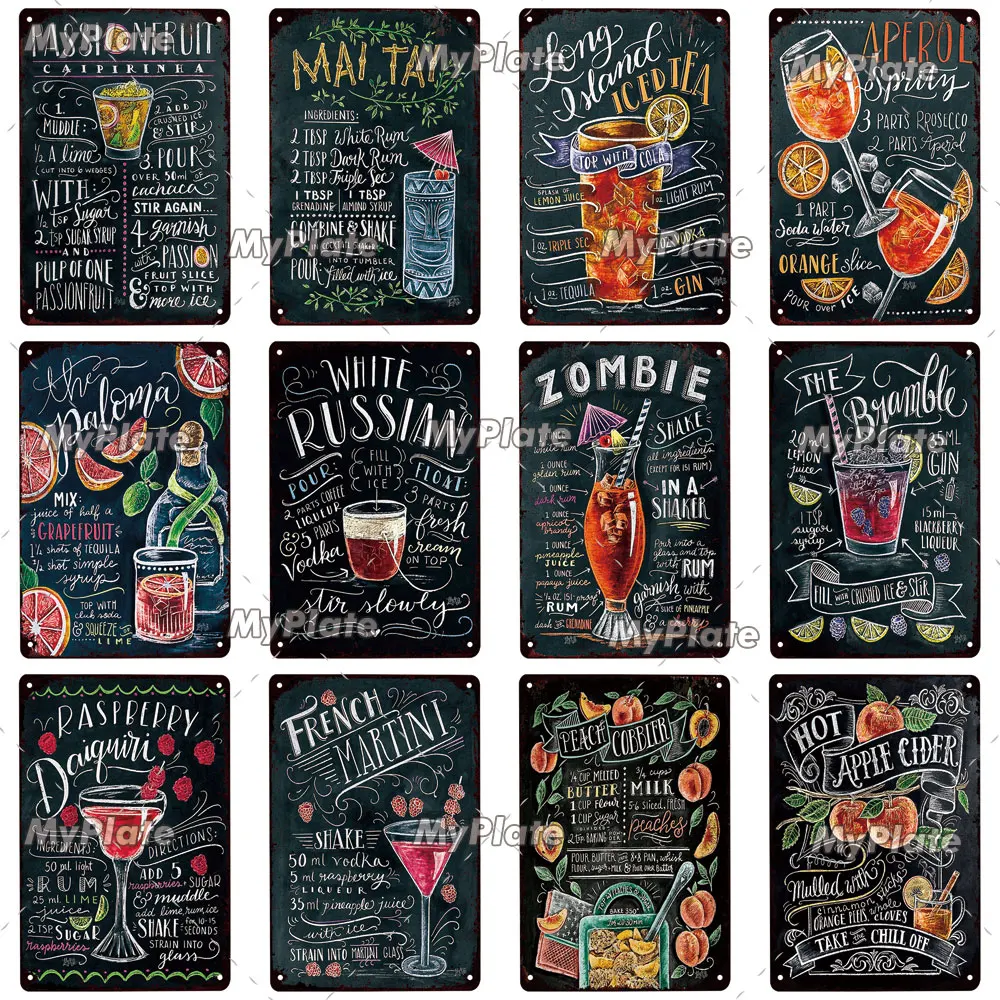 PASSIONFRUIT
CAIPIRINHA
1.
MUDDLE:
1/2 A lime
(CUT INTO 6 WEDGES)
WITH:
1/2 TSP Sugar
2 TSP SUGAR SYRUP
AND
PULP OF ONE
PASSIONFRUIT
2 ADD
CRUSHED ICE
& STIR
3. POUR
OVER 50ml OF
cachaca
STIR AGAIN...
4. garnish
with PASSION
FRUIT SLICE
& TOP WITH
more ice
MyPlate
MyPlate
MAI TAI
INGREDIENTS:
2 TBSP White Rum
2 TBSP Dark Rum
2 TBSP Triple Sec
1 TBSP GRENADINE
1 TBSP ALMOND SYRUP
COMBINE & SHAKE
IN COCKTAIL SHAKER
POUR INTO TUMBLER
filled with ice
MyPlate
Long
Island
ICED TEA
TOP WITH COLA
SPLASH OF
LEMON JUICE
1 OZ. LIGHT RUM
1 OZ. TRIPLE SEC
1 OZ. VODKA
1 OZ. TEQUILA
1 OZ. GIN
MyPlate
MyPlate
APEROL
Spritz
3 PARTS PROSECCO
2 PARTS Aperol
1 PART
Soda Water
ORANGE slice
POUR OVER ICE
MyPlate
the
Paloma
MIX:
juice of half a
GRAPEFRUIT
1 1/4 shots of TEQUILA
1/4 shot simple
syrup
TOP WITH
club soda
& SQUEEZE OF
LIME
MyPlate
MyPlate
WHITE
RUSSIAN
FILL
WITH
ICE
POUR
2 PARTS COFFEE
LIQUEUR
& 5 PARTS
Vodka
FLOAT:
3 PARTS
fresh
cream
ON TOP
stir slowly
MyPlate
ZOMBIE
1 OUNCE
white rum
1 OUNCE
golden rum
1 OUNCE
dark rum
1 OUNCE
apricot
brandy
1 OUNCE
pineapple
JUICE
1 OUNCE
papaya juice
1/2 OZ. 151-proof
RUM
dash OF GRENADINE
SHAKE
all ingredients
(EXCEPT FOR 151 RUM)
IN A
SHAKER
Pour into a
glass and top
with RUM
garnish with
A SLICE OF PINEAPPLE
& a cherry
MyPlate
MyPlate
THE
Bramble
LEMON
juice
GIN
1 TSP
sugar
syrup
15 ml
BLACKBERRY
LIQUEUR
FILL WITH CRUSHED ICE & STIR
MyPlate
RASPBERRY
Daiquiri
INGREDIENTS:
50 ml. light
RUM
25 ml. LIME
juice
2 TSP. SUGAR
raspberries
DIRECTIONS:
ADD 5
raspberries, SUGAR
& muddle
add lime, rum, ice
SHAKE FOR 10-15
SECONDS
STRAIN INTO
glass
MyPlate
MyPlate
FRENCH
MARTINI
SHAKE
50 ml vodka
5 ml raspberry
LIQUEUR
35 ml pineapple juice
with ice
STRAIN INTO MARTINI GLASS
MyPlate
PEACH COBBLER
1/4 CUP MELTED
BUTTER
1 CUP flour
1 CUP Sugar
2 TSP. BAKING
3/4 cups
MILK
5-6 sliced, FRESH
peaches
POUR BUTTER 8x8 PAN, whisk
FLOUR, sugar, MILK & POUR OVER BUTTER
TOP W/ PEACHES & SUGAR
BAKE 350°
MyPlate
MyPlate
HOT
APPLE CIDER
Mulled with
cinnamon sticks
ORANGE PEELS, whole CLOVES
TAKE THE CHILL OFF
MyPlate